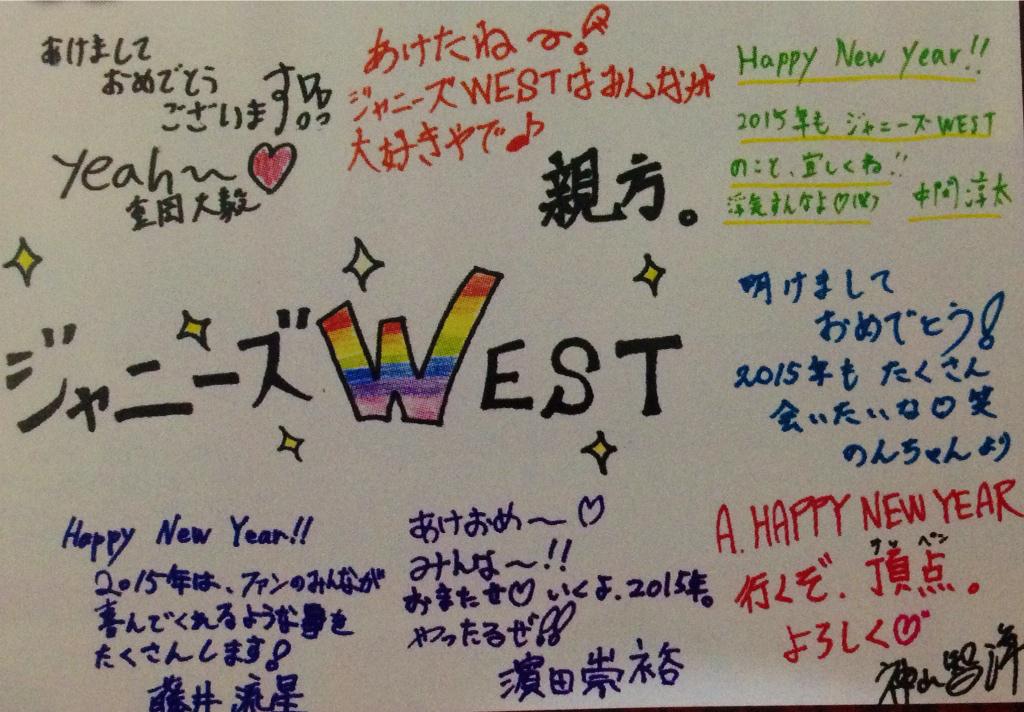 あけまして
おめでとう
ございます
yeah~♡
重岡大毅
あけたね～!
ジャニーズWESTはみんなが
大好きやで♪
親方。
Happy New Year!!
2015年も ジャニーズWEST
のこと、宜しくね!!
浮気すんなよ♡(笑)
中間淳太
ジャニーズWEST
明けまして
おめでとう!
2015年も たくさん
会いたいな♡笑
のんちゃんより
Happy New Year!!
2015年は、ファンのみんなが
喜んでくれるような事を
たくさんします!
藤井流星
あけおめ～♡
みんな～!!
おまたせ♡いくよ、2015年。
やったるぜ!!
濵田崇裕
A. HAPPY NEW YEAR
行くぞ、頂点。
よろしく♡
神山智洋